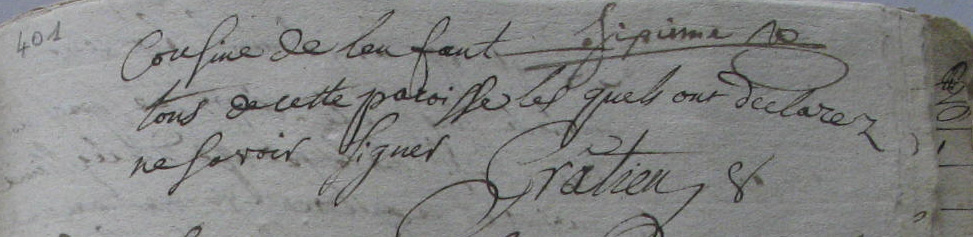 401
Cousine de lenfant
tous de cette paroisse les quels ont declarez
ne savoir signer Gratien